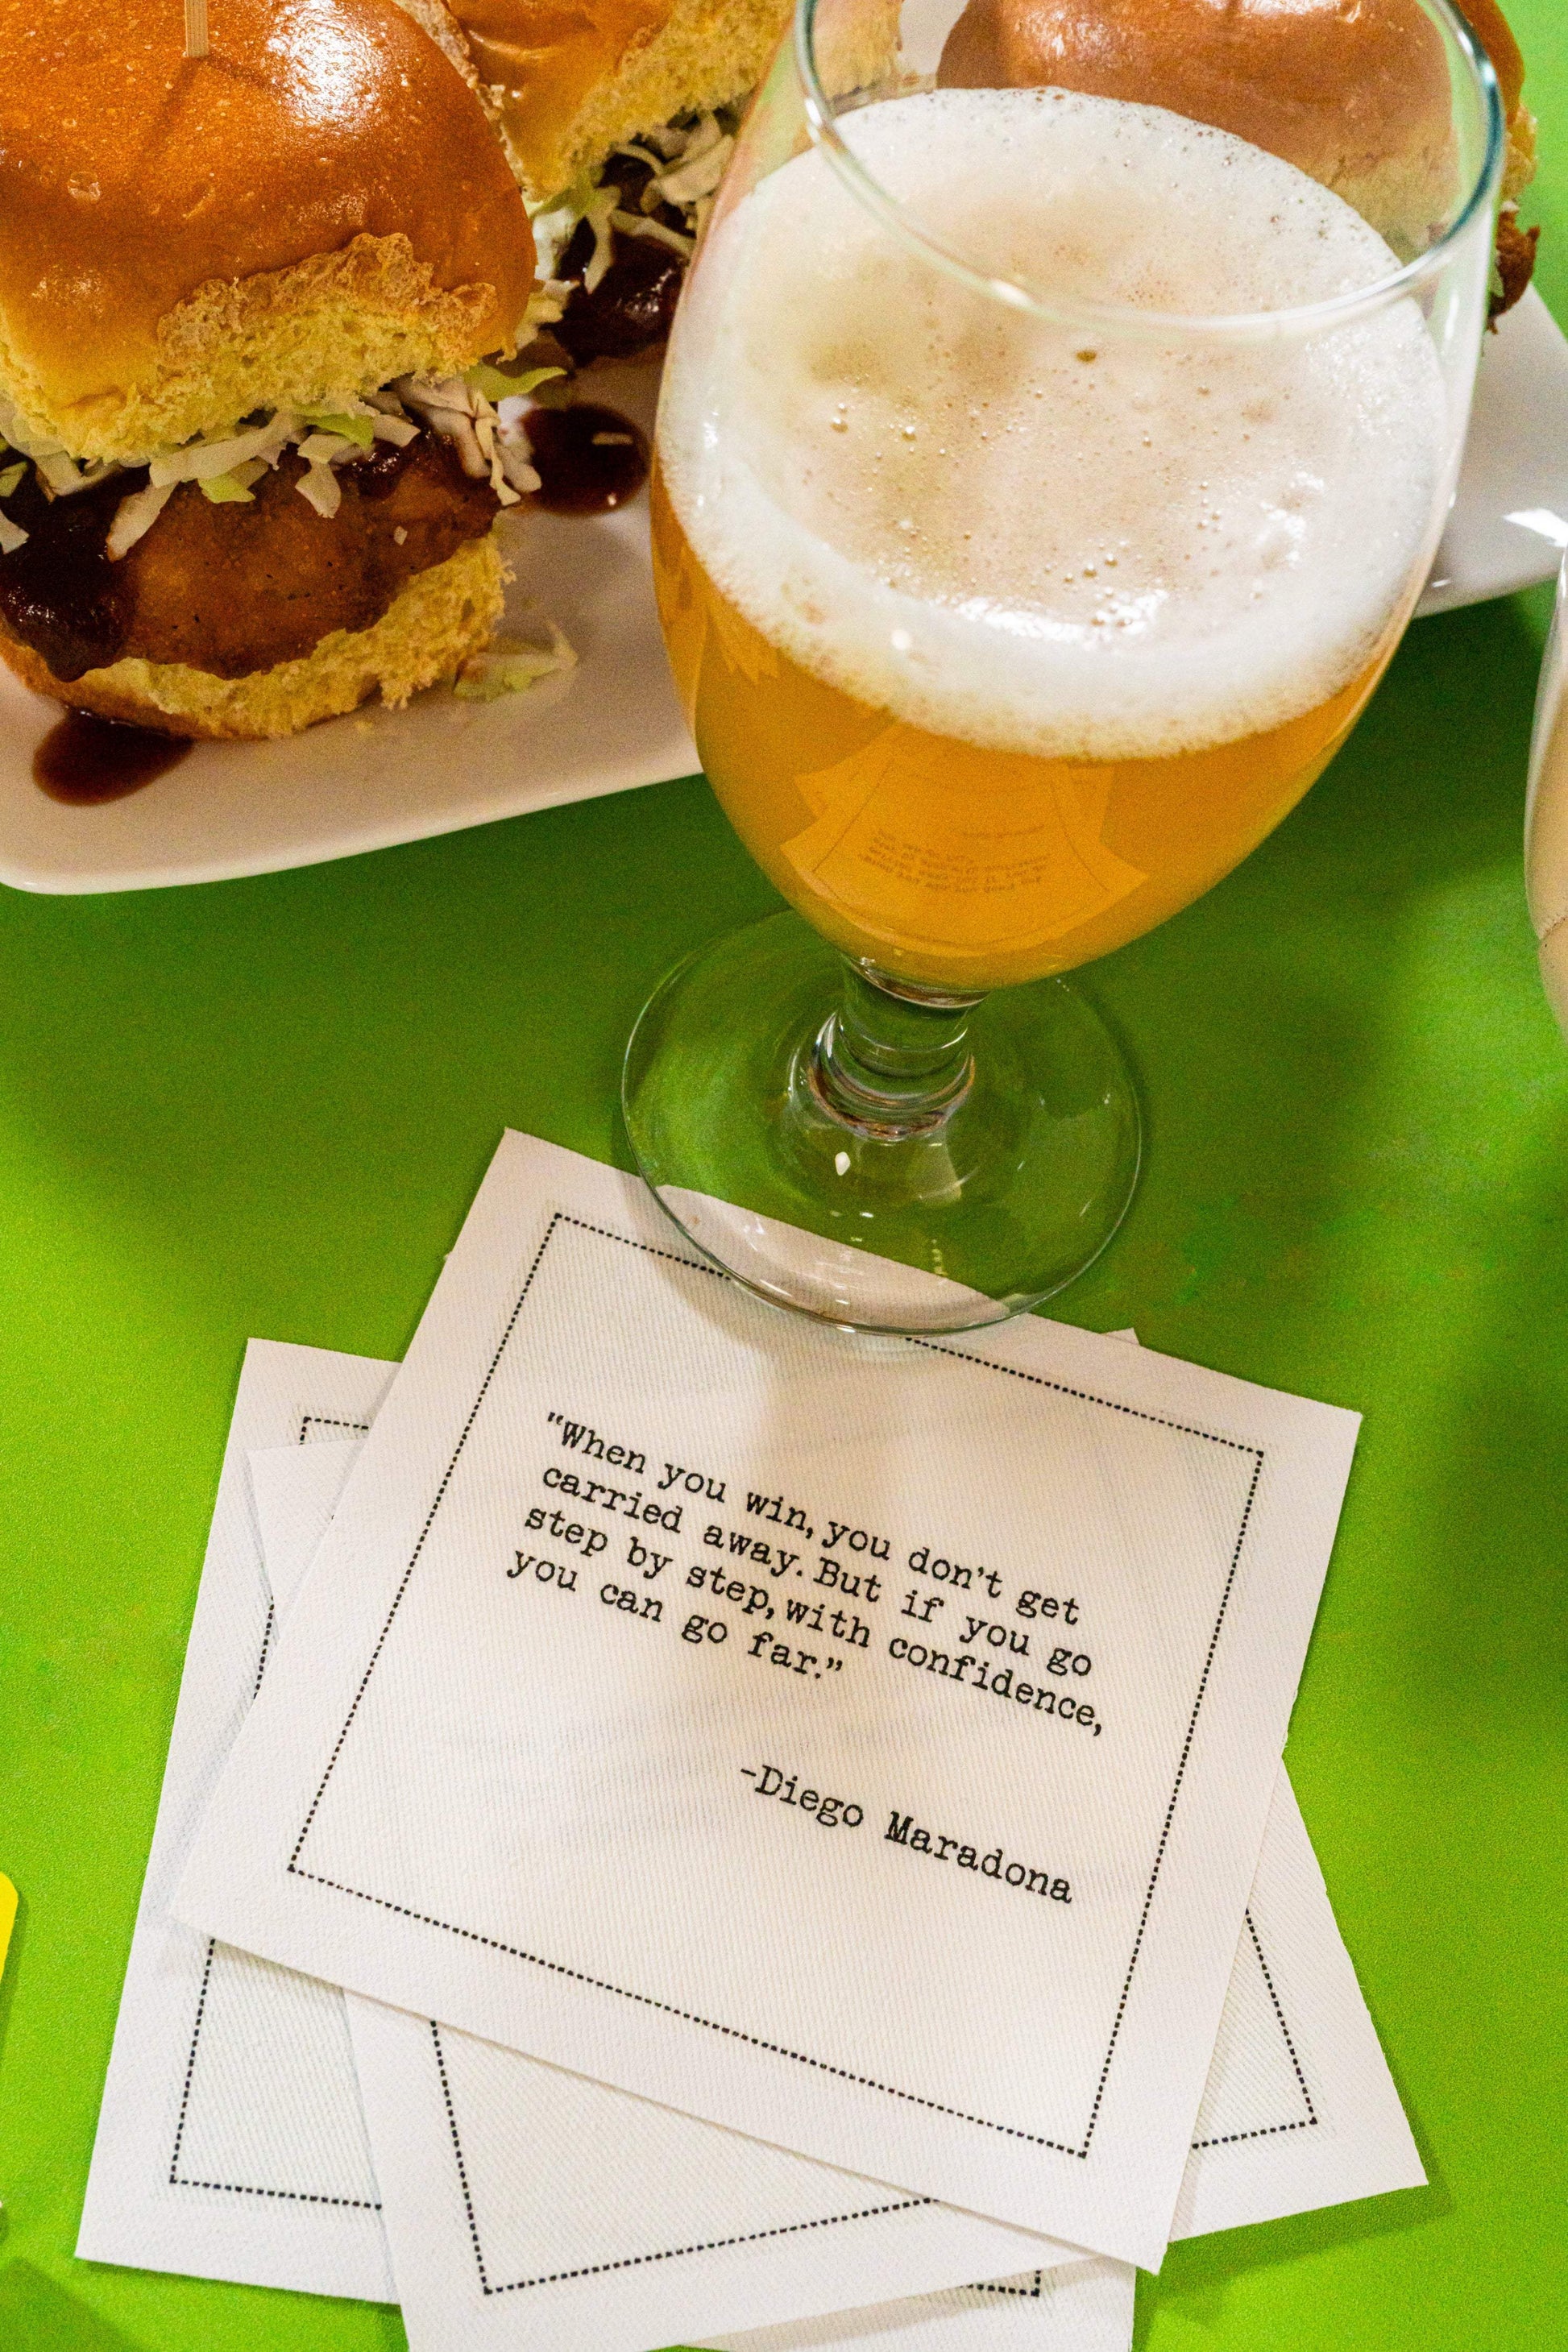 “When you win, you don’t get
carried away. But if you go
step by step, with confidence,
you can go far.”
-Diego Maradona